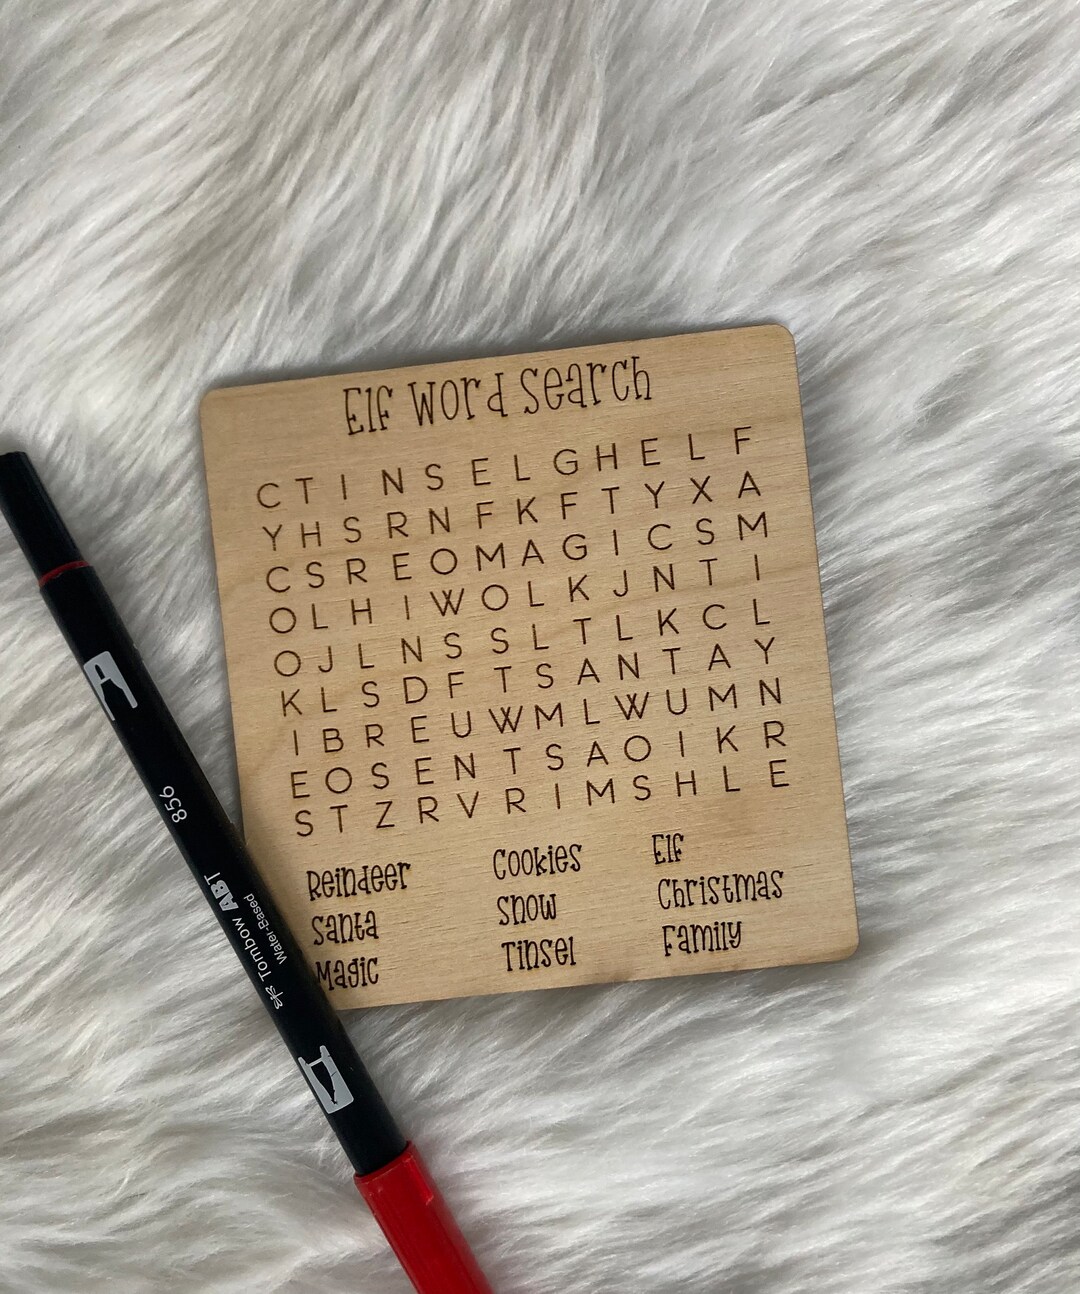 Elf Word Search
C T I N S E L G H E L F
Y H S R N F K F T Y X A
C S R E O M A G I C S M
O L H I W O L K J N T I
O J L N S S L T L K C L
K L S D F T S A N T A Y
I B R E U W M L W U M N
E O S E N T S A O I K R
S T Z R V R I M S H L E
Reindeer Cookies Elf
Santa Snow Christmas
Magic Tinsel Family
856
ABT
Tombow
Water-Based